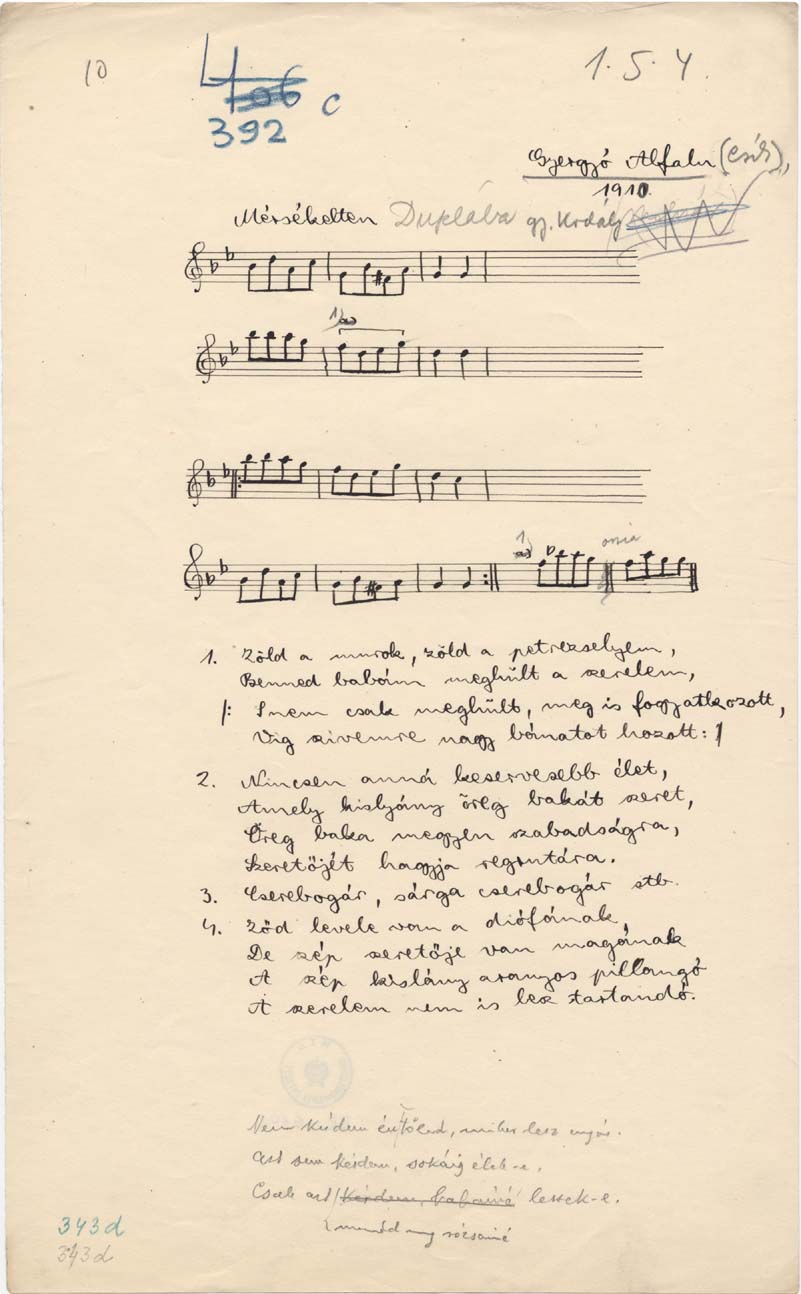 10
1. 5. 4.
406 c
392
Gyergyó Alfalu (Csík),
1910.
Mérsékelten Duplába gy. Kodály
1)
1)
ossia
1. Zöld a murok, zöld a petrezselyem,
Benned babám meghült a szerelem,
/: S nem csak meghült, meg is fogyatkozott,
Vig szivemre nagy bánatot hozott :/
2. Nincsen anná keservesebb élet,
Amely kislyány öreg bakát szeret,
Öreg baka megyen szabadságra,
Szeretőjét hagyja regrutára.
3. Cserebogár, sárga cserebogár stb.
4. Ződ levele van a diófának,
De szép szeretője van magának
A szép kislány aranyos pillangó
A szerelem nem is lesz tartandó.
Nem kérdem én tőled, mikor lesz
Azt sem kérdem, sokáig élek-e,
Csak azt kérdem, babámé leszek-e.
mondd meg rózsámé
343d
343d